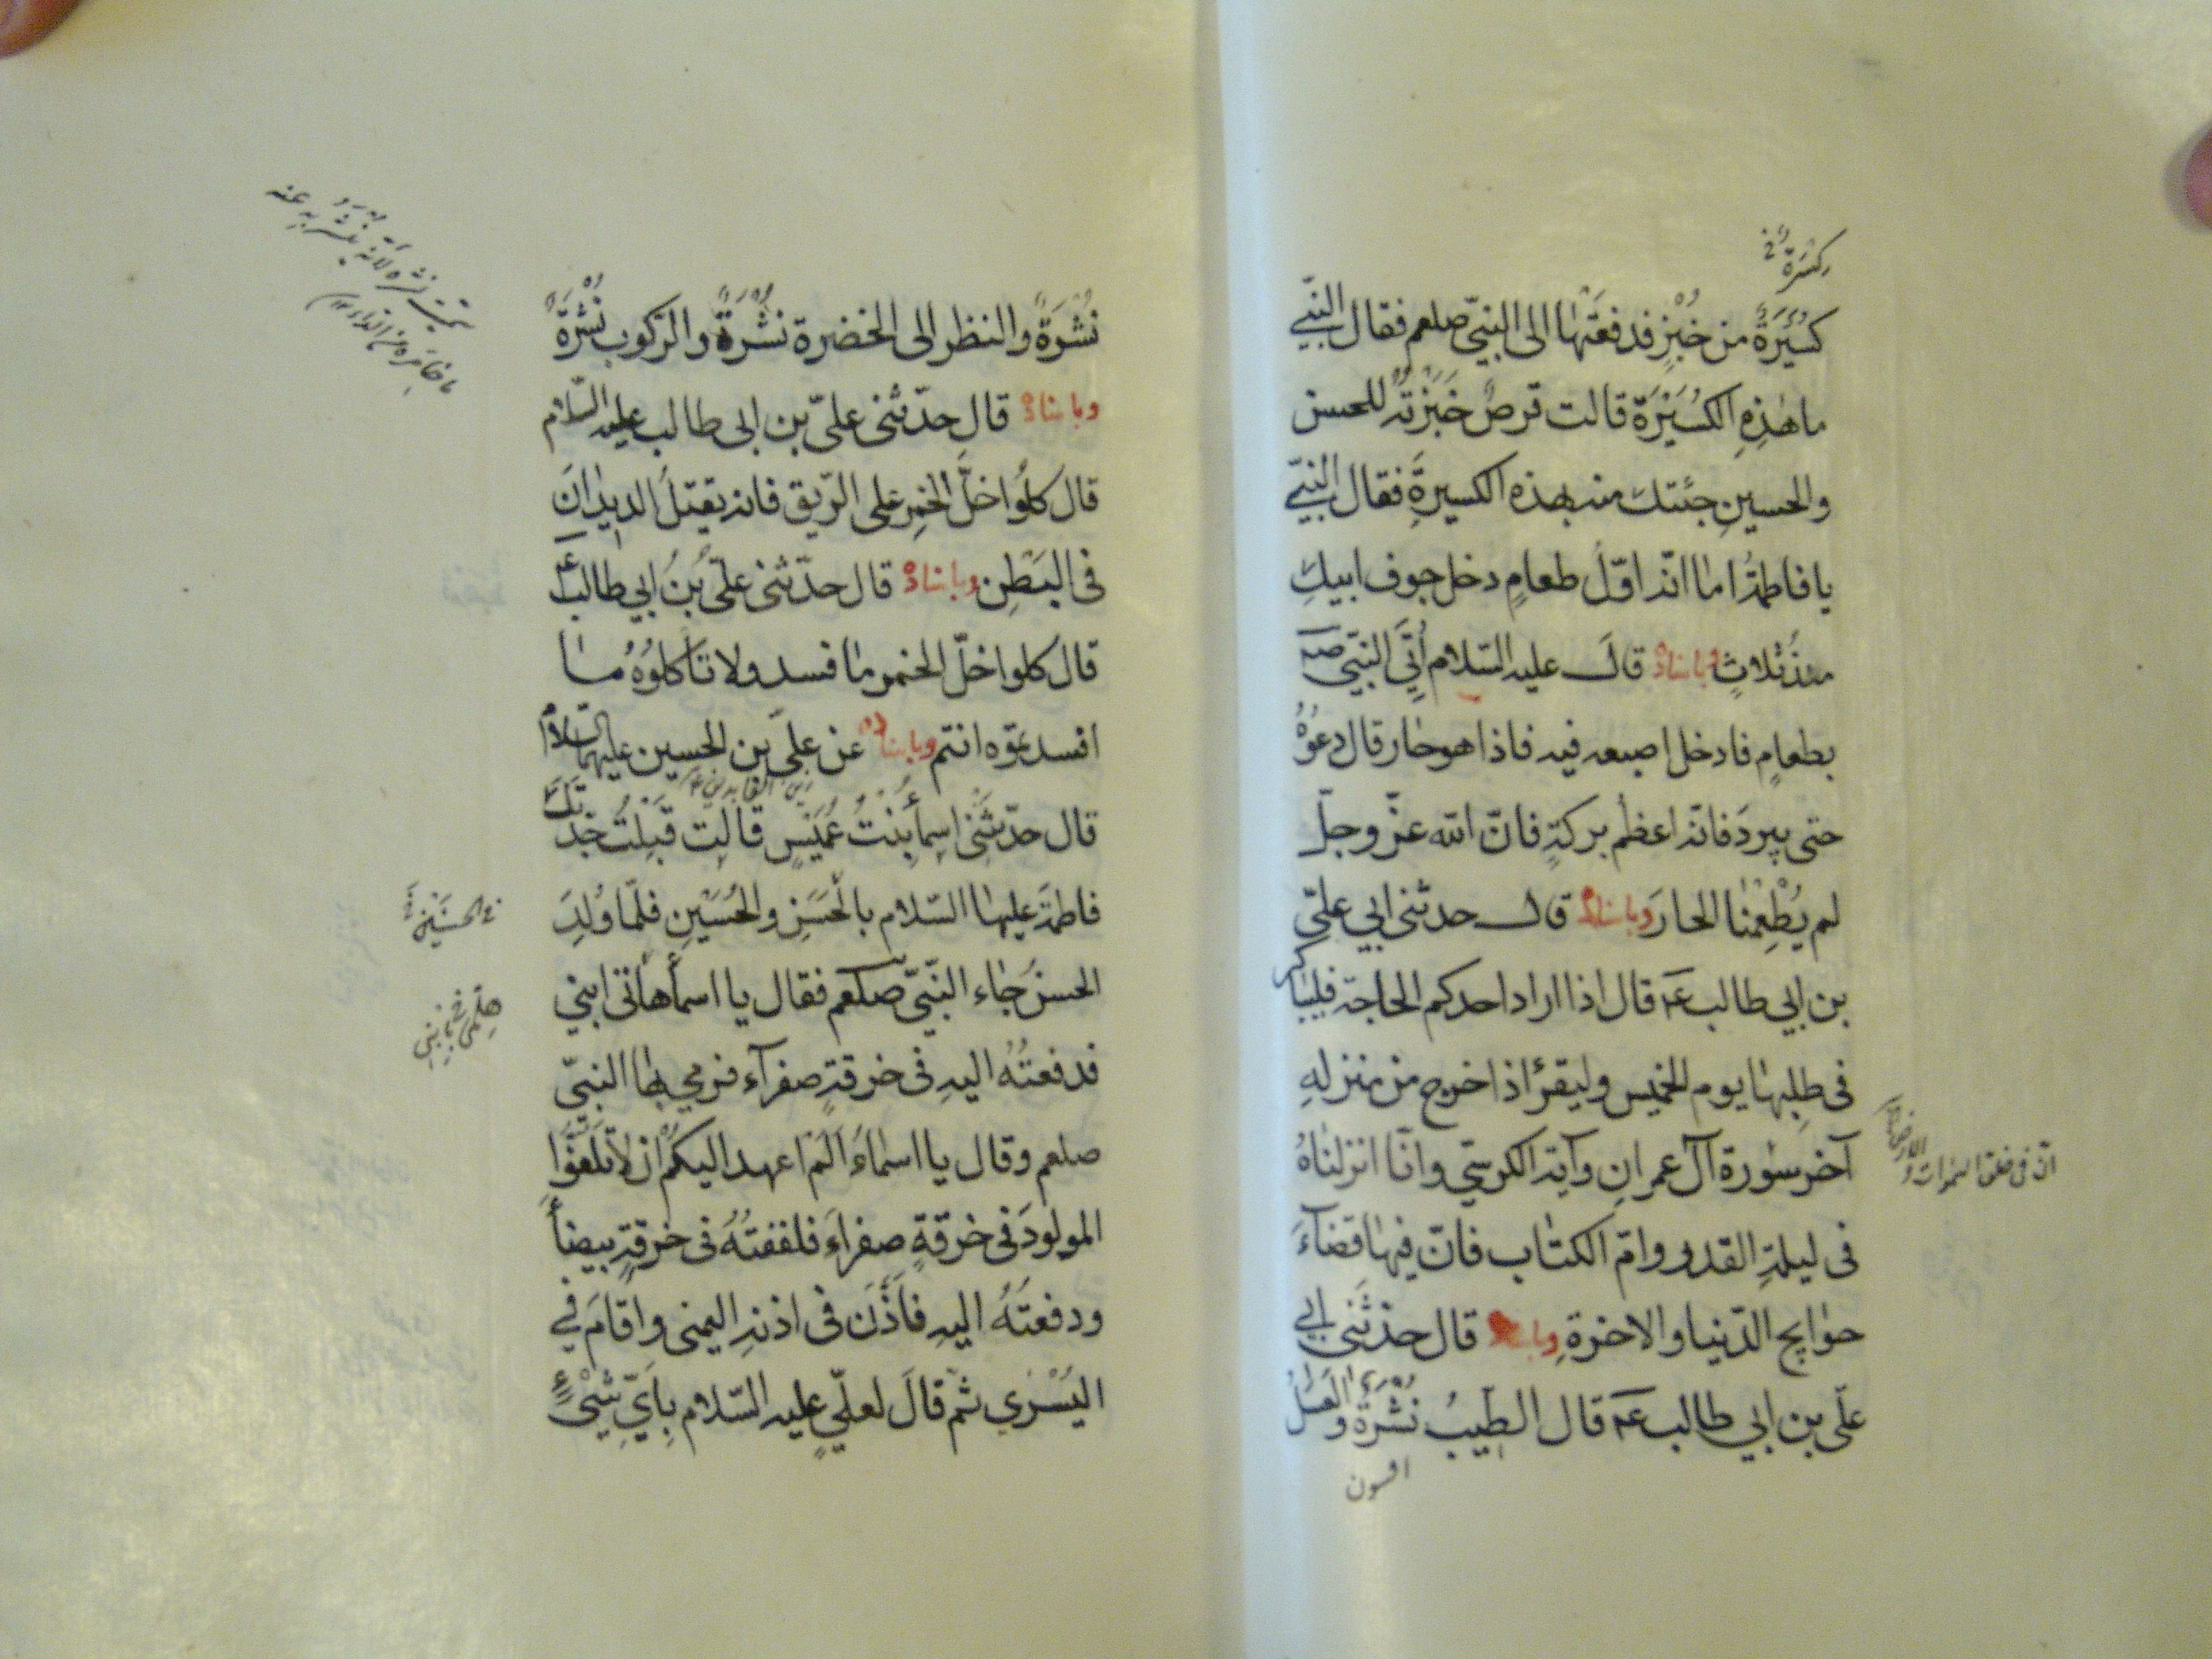 كسرة خ
كُسَيْرَةً من خُبْزٍ فدفعَتْها الى النبيّ صلعم فقال النبّي
ما هٰذِهِ الكُسَيْرَة قالت قرصٌ خَبَزْتُهُ للحسن
والحسينِ جئتك منه بهذه الكسيرةِ فقال النبّي
يا فاطمةُ اما انّه اوّلُ طعامٍ دخل جوف ابيكِ
منذُ ثلاثٍ وباسناده قال عليه السّلام أُتِيَ النبّيّ صلم
بطعامٍ فادخل اصبعه فيه فاذا هو حار قال دعُوهُ
حتى يبردَ فانّه اعظمُ بركةٍ فانّ الله عزّ وجلّ
لم يُطْعِمْنا الحارَ وباسناده قال حدثنى ابي علىّ
بن ابي طالب عه قال اذا اراد احدكم الحاجة فليباكر
فى طلبِها يوم الخميس وليقرأ اذا خرج من منزلهِ
آخر سورة آل عمرانِ وآية الكرسيّ وانّا انزلناهُ
فى ليلةِ القدر وامّ الكتاب فانّ فيها قضآءَ
حوايج الدّنيا والاخرةِ وباسناده قال حدّثَنى ابي
علىّ بن ابي طالب عه قال الطيبُ نُشْرَةٌ والعسلُ
افسون
انّ فى خلق السموات والارض
نُشْرَةٌ والنظر الى الخضرة نُشْرَةٌ والرّكوب نُشْرَةٌ
وباسناده قال حدّثنى علىّ بن ابى طالب عليه السّلام
قال كلُوا خلَّ الخمرِ على الرّيق فانه يقتلُ الديدانَ
فى البَطْنِ وباسناده قال حدّثنى علىّ بنُ ابي طالب ع
قال كلوا خلّ الخمر ما فسد ولا تأكلوُهُ ما
افسدتموّه انتم وباسناده عن علىّ بن الحسين عليهما السّلام
زين العابدين ع
قال حدّثَتْنى اسمأ بنْتُ عُمَيْسٍ قالت قبلتُ جَدّتَكَ
فاطمةَ عليها السّلام بالحَسَنِ والحُسَيْنِ فلمّا وُلِدَ
الحسنُ جاء النبّيّ صلعم فقال يا اسمأ هاتى ابني
فدفعتُهُ اليهِ فى خرقةٍ صفرآء فرمي بها النبىّ
صلعم وقال يا اسماءَ اَلَمْ اعهد اليكم ان لا تلفّوُا
المولودَ فى خرقةٍ صفراءَ فلففتُهُ فى خرقةٍ بيضأ
ودفعتُهُ اليهِ فاَذَّنَ فى اذنهِ اليمنى واقامَ في
اليُسْري ثمّ قالَ لعلىٍّ عليه السّلام بِايِّ شيْءٍ
سميت نشره لانه ينشر به عنه
الحسنين خ
هلمّى خ بابنى